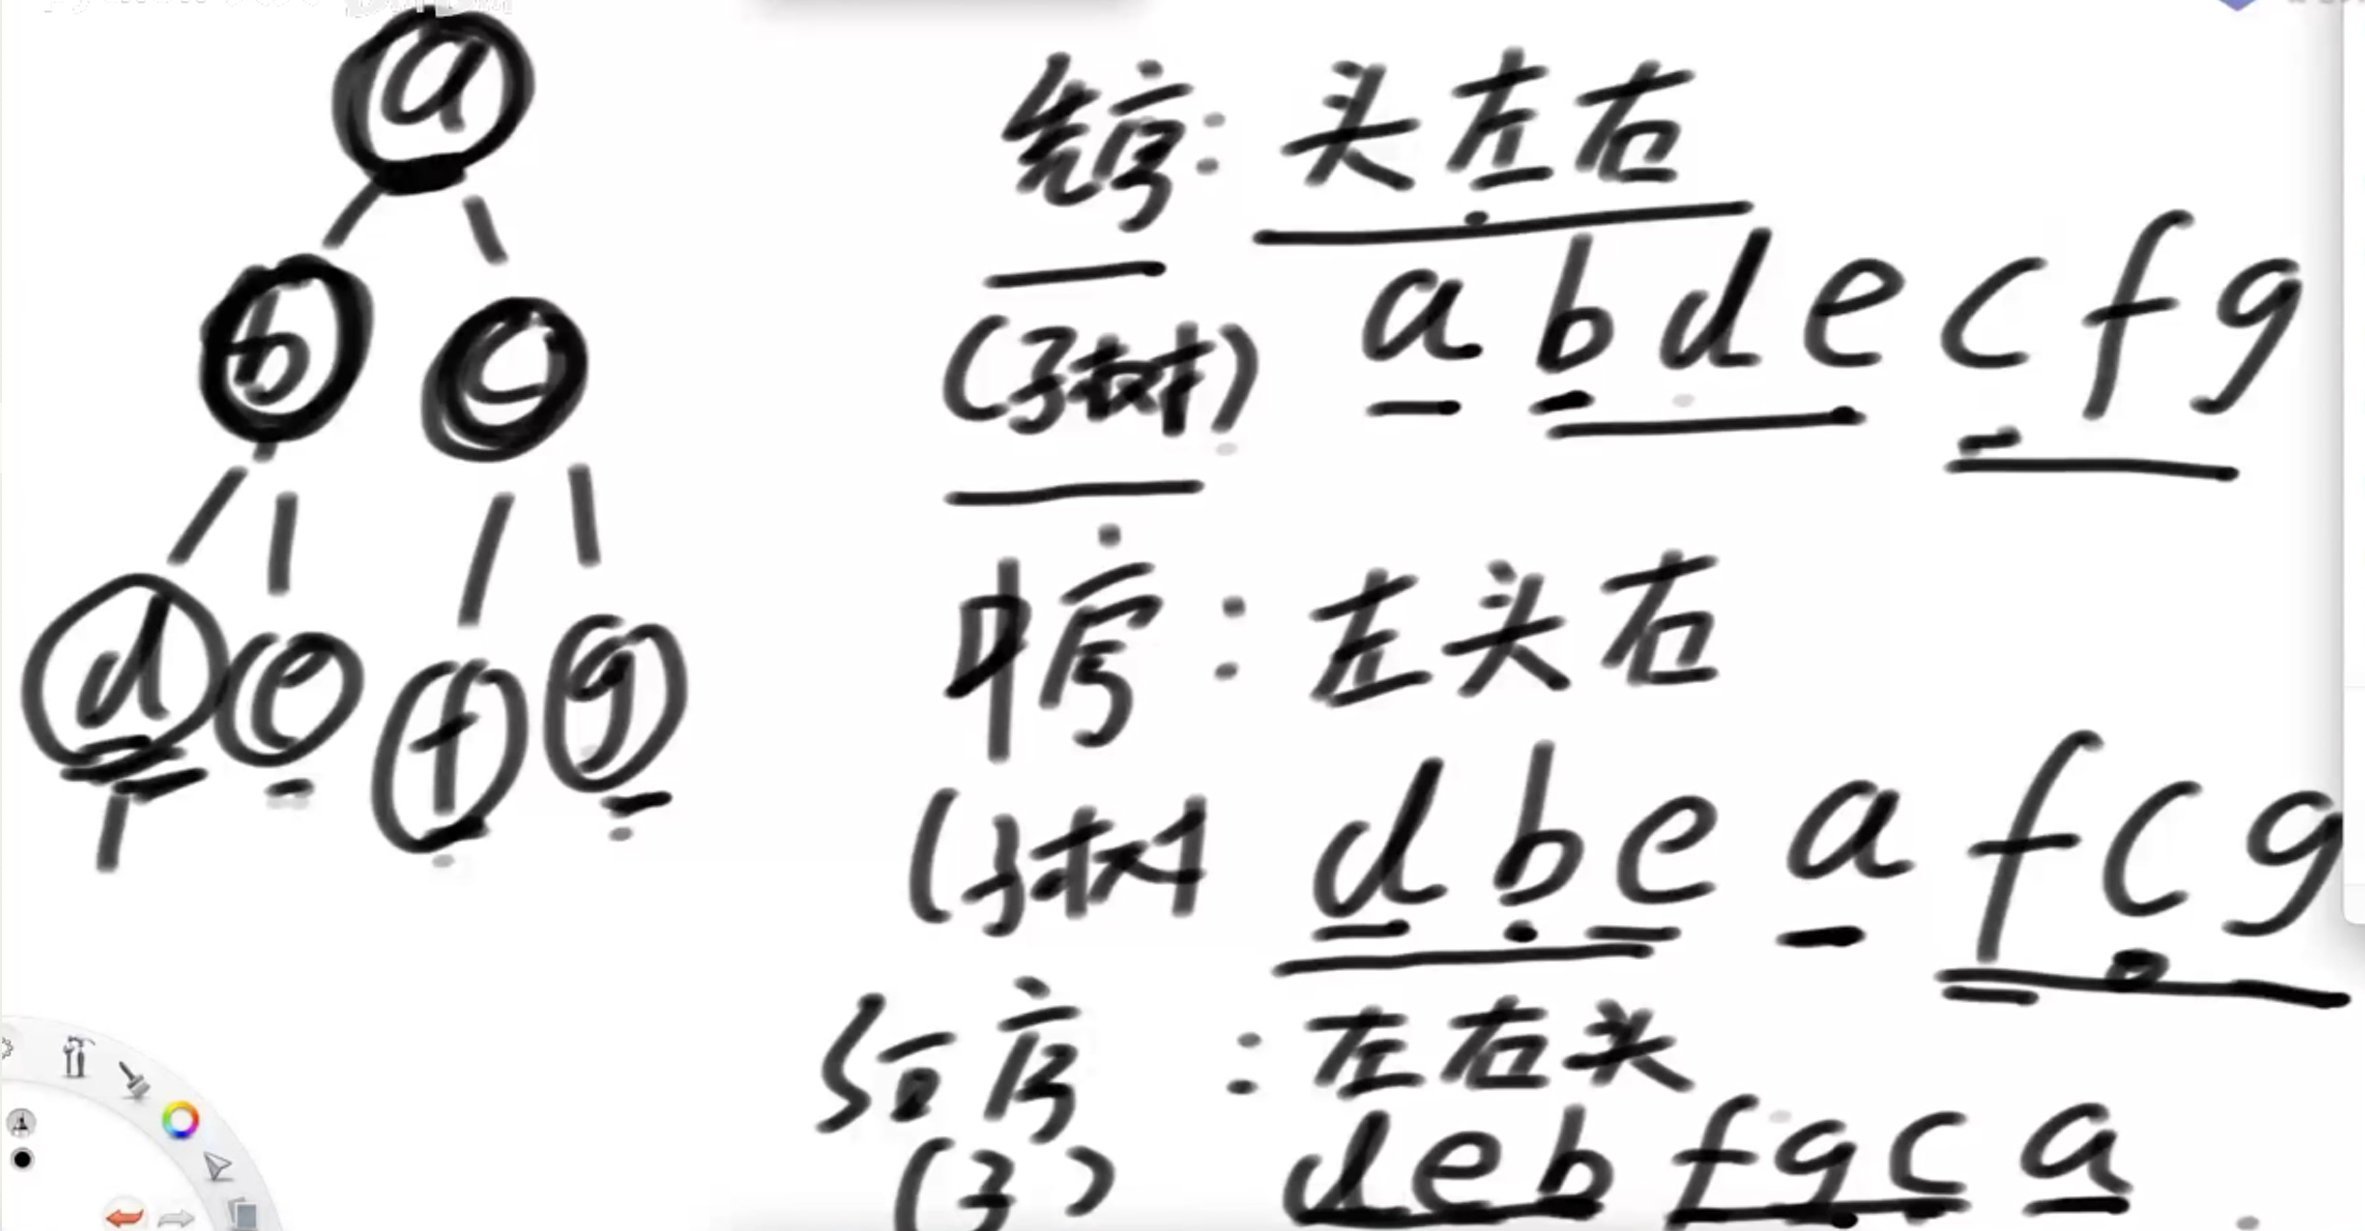 a
b c
d e f g
先序: 头左右
a b d e c f g
(子树)
中序: 左头右
(子树 d b e a f c g
后序: 左右头
(子) d e b f g c a